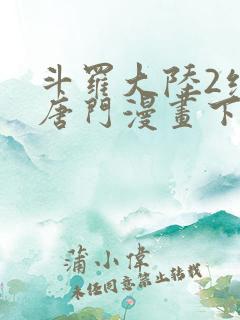 斗羅大陸2
唐門漫畫下
蒲小偉
未经同意禁止转载